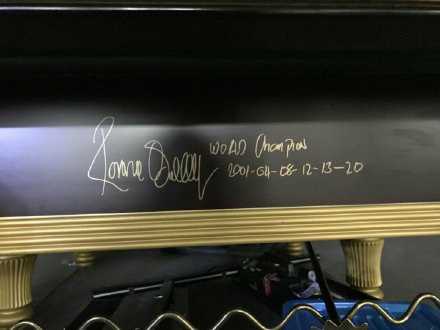 Ronnie O'Sullivan WORLD Champion
2001-04-08-12-13-20